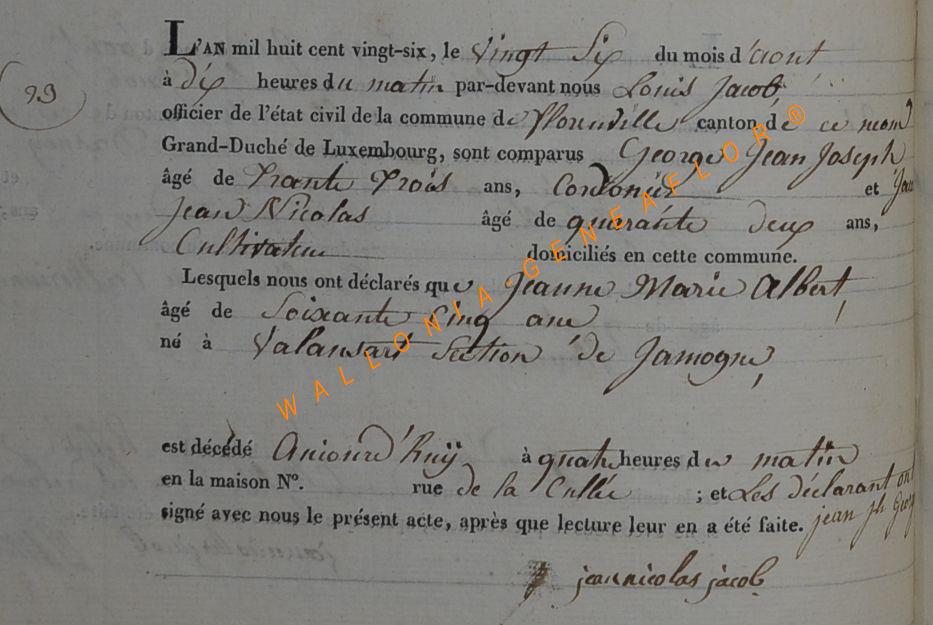 L'AN mil huit cent vingt-six, le Vingt Six du mois d'aout
à dix heures du matin par-devant nous Louis Jacob,
29
officier de l'état civil de la commune de florenville canton de ce nom
Grand-Duché de Luxembourg, sont comparus George Jean Joseph
âgé de Trante Trois ans, Cordonier et
Jean Nicolas âgé de quarante deux ans,
Cultivateur domiciliés en cette commune.
Lesquels nous ont déclarés que Jeanne Marie Albert,
âgé de Soixante Cinq ans
né à Valansart Section de Jamogne,
est décédé Aujourd'huÿ à quatre heures du matin
en la maison N°. rue de la Cullée ; et Les déclarant ont
signé avec nous le présent acte, après que lecture leur en a été faite. jean jh Georg
jean nicolas jacob
WALLONIA-GENEAFLOR®